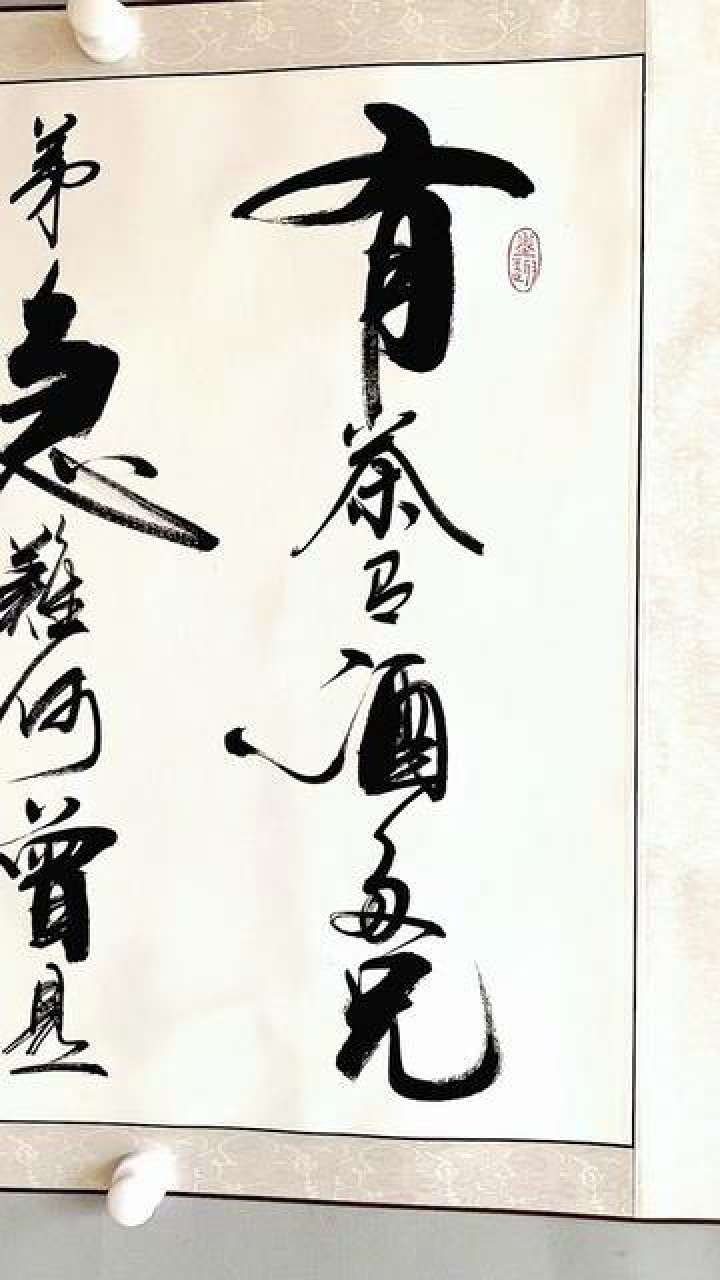 有茶酒多兄
弟急難何曾見一